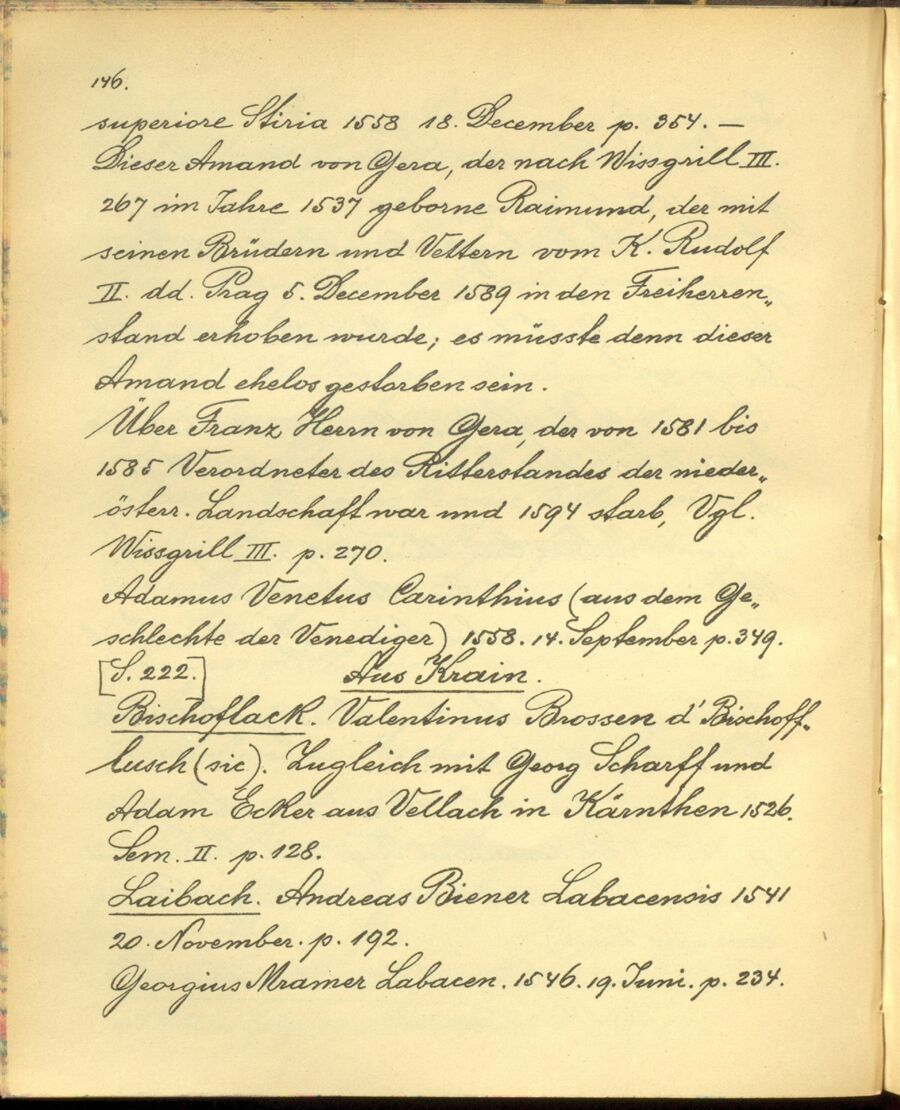 146.
superiore Stiria 1558 18. December p. 354. —
Dieser Amand von Gera, der nach Wissgrill III.
267 im Jahre 1537 geborne Raimund, der mit
seinen Brüdern und Vettern vom K. Rudolf
II. dd. Prag 5. December 1589 in den Freiherren„
stand erhoben wurde; es müsste denn dieser
Amand ehelos gestorben sein.
Über Franz Herrn von Gera, der von 1581 bis
1585 Verordneter des Ritterstandes der nieder„
österr. Landschaft war und 1594 starb, Vgl.
Wissgrill III. p. 270.
Adamus Venetus Carinthius (aus dem Ge„
schlechte der Venediger) 1558. 14. September p. 349.
[S. 222.] Aus Krain.
Bischoflack. Valentinus Brossen d' Bischoff„
lusch (sic). Zugleich mit Georg Scharff und
Adam Ecker aus Vellach in Kärnthen 1526.
Sem. II. p. 128.
Laibach. Andreas Biener Labacensis 1541
20. November. p. 192.
Georgius Mramer Labacen. 1546. 19. Juni. p. 234.